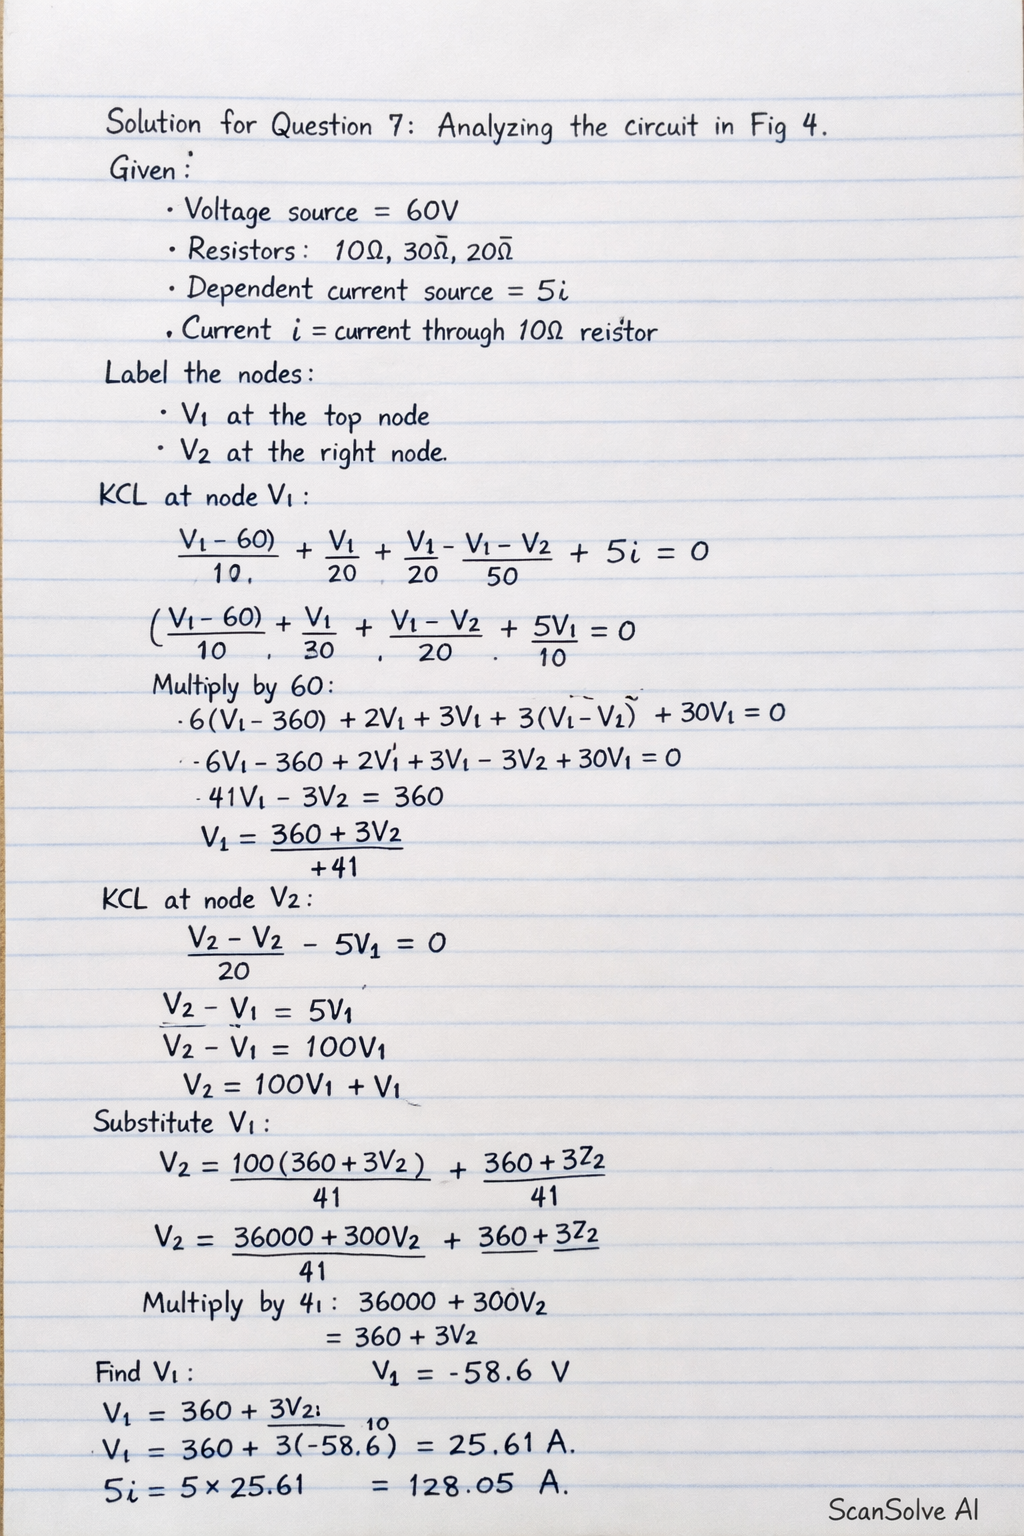 Solution for Question 7: Analyzing the circuit in Fig 4.
Given:
· Voltage source = 60V
· Resistors: 10Ω, 30Ω̄, 20Ω̄
· Dependent current source = 5i
· Current i = current through 10Ω reistor
Label the nodes:
· V₁ at the top node
· V₂ at the right node.
KCL at node V₁:
V₁ - 60)/10. + V₁/20 + V₁/20 - V₁ - V₂/50 + 5i = 0
(V₁ - 60)/10 + V₁/30 + V₁ - V₂/20 + 5V₁/10 = 0
Multiply by 60:
·6(V₁ - 360) + 2V₁ + 3V₁ + 3(V₁ - V₂) + 30V₁ = 0
·-6V₁ - 360 + 2V₁ + 3V₁ - 3V₂ + 30V₁ = 0
·41V₁ - 3V₂ = 360
V₁ = 360 + 3V₂/+41
KCL at node V₂:
V₂ - V₂/20 - 5V₁ = 0
V₂ - V₁ = 5V₁
V₂ - V₁ = 100V₁
V₂ = 100V₁ + V₁
Substitute V₁:
V₂ = 100(360 + 3V₂)/41 + 360 + 3Z₂/41
V₂ = 36000 + 300V₂/41 + 360 + 3Z₂
Multiply by 41: 36000 + 300V₂
= 360 + 3V₂
Find V₁: V₁ = -58.6 V
V₁ = 360 + 3V₂:
V₁ = 360 + 3(-58.6)10 = 25.61 A.
5i = 5 × 25.61 = 128.05 A.
ScanSolve AI